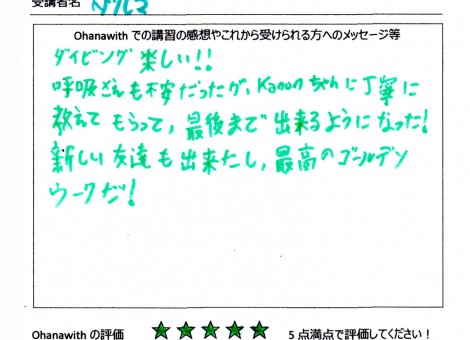 受講者名
Ohanawith での講習の感想やこれから受けられる方へのメッセージ等
ダイビング 楽しい!!
呼吸さえも不安だったが、Kanonちゃんに丁寧に
教えて もらって、最後まで 出来るようになった!
新しい 友達も出来たし、最高のゴールデン
ウークだ!
Ohanawith の評価 ★★★★★ 5点満点で評価してください!